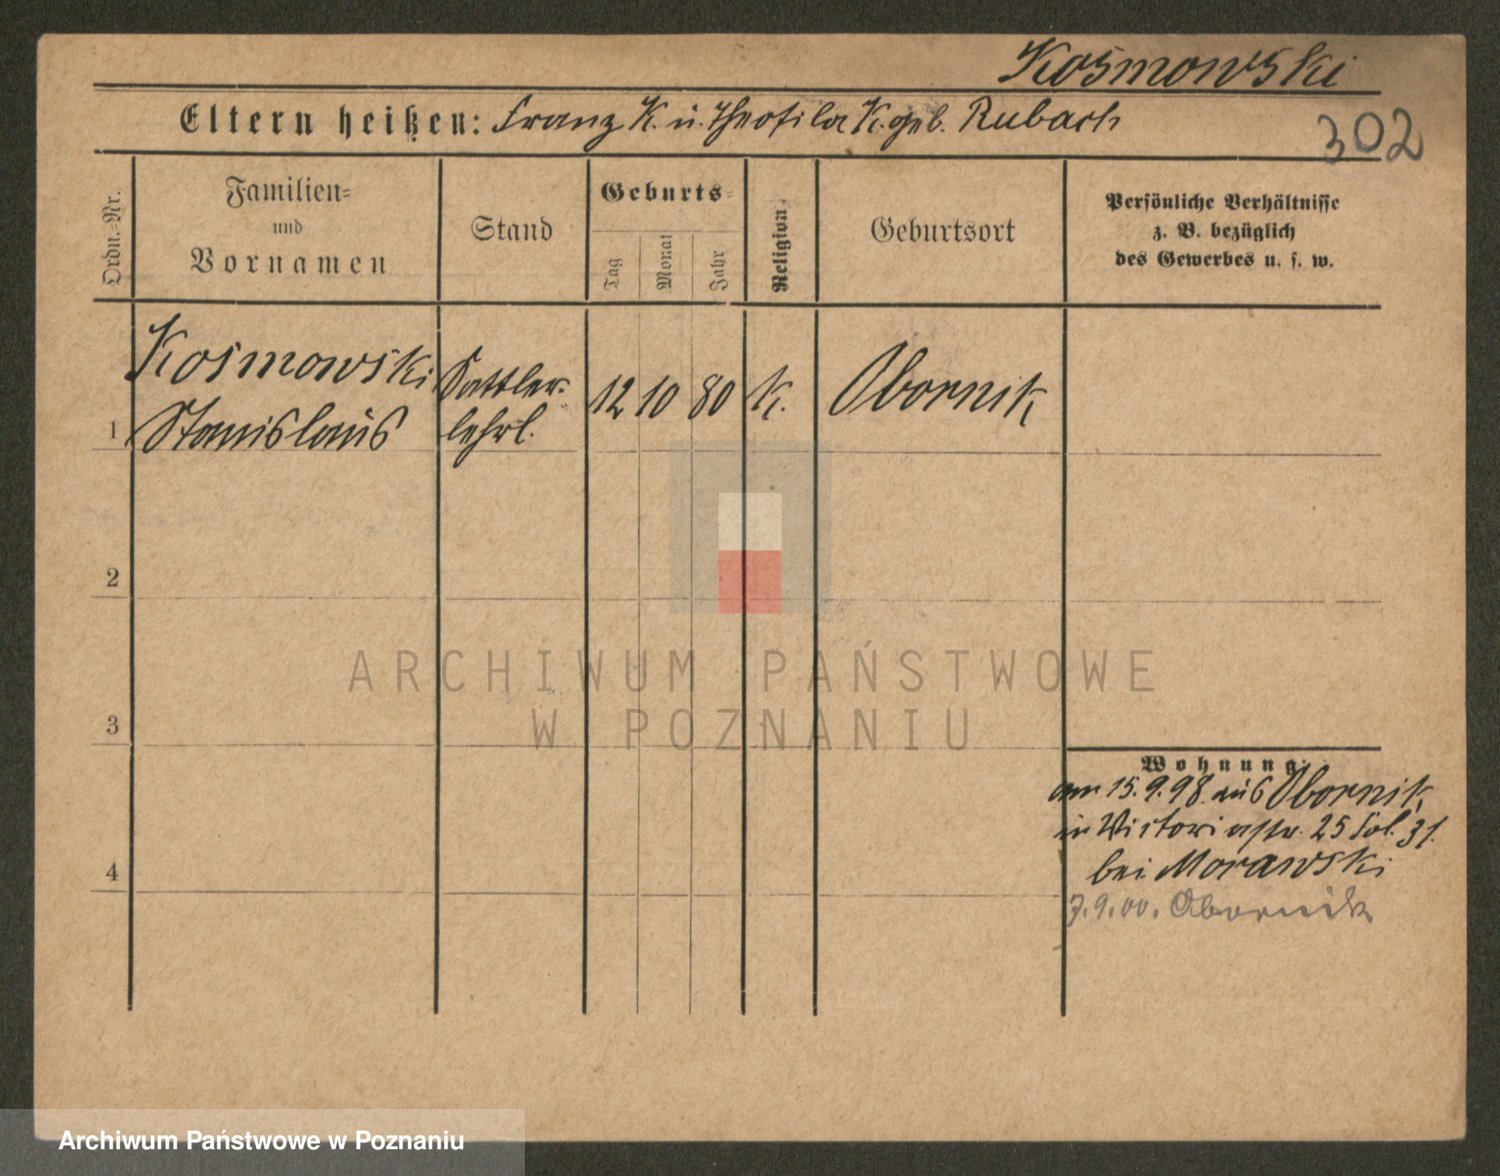 Kosmowski
Eltern heißen: Franz K. u. Theofila K. geb. Rubach
302
Ordn.-Nr.
Familien-
und
Vornamen
Stand
Geburts-
Tag
Monat
Jahr
Religion
Geburtsort
Persönliche Verhältnisse
z. B. bezüglich
des Gewerbes u. s. w.
Kosmowski
Stanislaus
Sattler-
lehrl.
1
12 10 80 K. Obornik
2
ARCHIWUM PAŃSTWOWE
W POZNANIU
3
Wohnung:
am 15.9.98 aus Obornik
in Victoriastr. 25 bei Morawski
4
7.9.00. Obornik
Archiwum Państwowe w Poznaniu